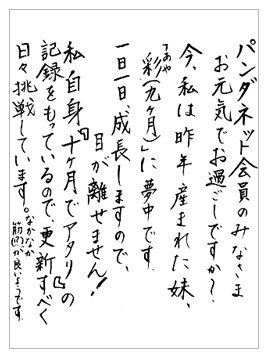 パンダネット会員のみなさま
お元気でお過ごしですか〜。
今、私は昨年産まれた妹、
「彩(九ヶ月)」に夢中です。
あや
一日一日、成長しますので、
目が離せません!
私自身『十ヶ月でアタリ』の
記録をもっているので、更新すべく
日々挑戦しています。
なかなか
筋(?)が良いようです。